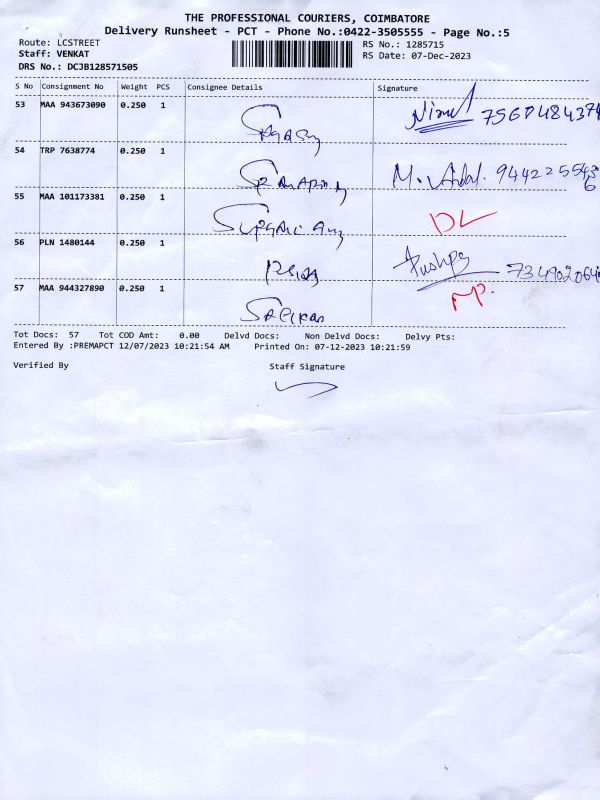 THE PROFESSIONAL COURIERS, COIMBATORE
Delivery Runsheet - PCT - Phone No.:0422-3505555 - Page No.:5
Route: LCSTREET
RS No.: 1285715
Staff: VENKAT
RS Date: 07-Dec-2023
DRS No.: DCJB128571505
S No Consignment No Weight PCS Consignee Details Signature
53 MAA 943673090 0.250 1
54 TRP 7638774 0.250 1
M.
55 MAA 101173381 0.250 1
DL
56 PLN 1480144 0.250 1
Pushpa
57 MAA 944327890 0.250 1
Tot Docs: 57 Tot COD Amt: 0.00 Delvd Docs: Non Delvd Docs: Delvy Pts:
Entered By :PREMAPCT 12/07/2023 10:21:54 AM Printed On: 07-12-2023 10:21:59
Verified By Staff Signature